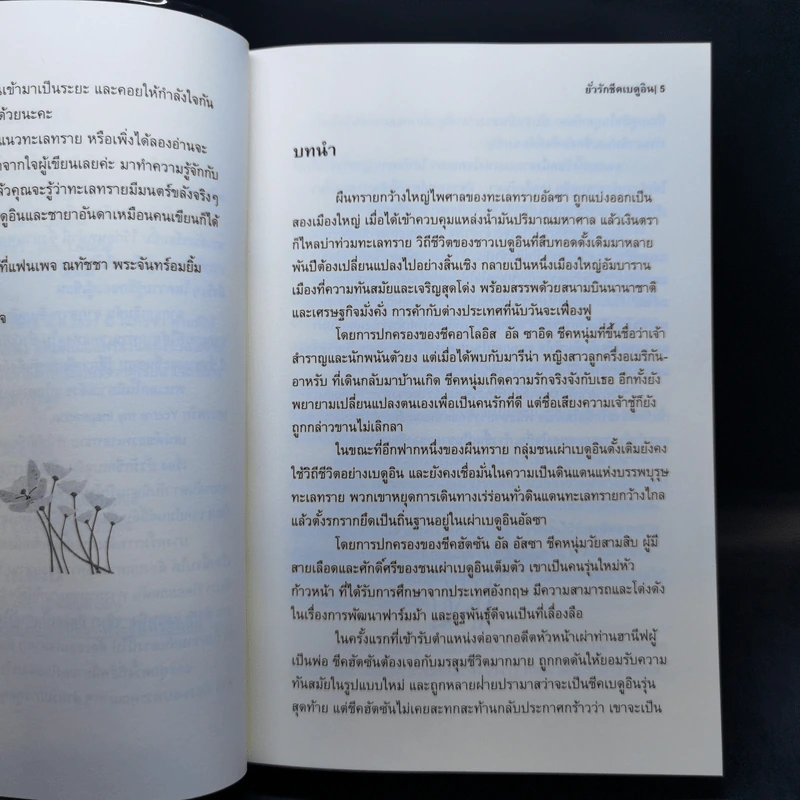 นเข้ามาเป็นระยะ และคอยให้กำลังใจกัน
ด้วยนะคะ
แนวทะเลทราย หรือเพิ่งได้ลองอ่านจะ
จากใจผู้เขียนเลยค่ะ มาทำความรู้จักกับ
ล้วคุณจะรู้ว่าทะเลทรายมีมนตร์ขลังจริงๆ
ดูอินและชายาอันดาเหมือนคนเขียนก็ได้
ที่แฟนเพจ ณทัชชา พระจันทร์อมยิ้ม
จ
ยั่วรักชีคเบดูอิน| 5
บทนำ
ผืนทรายกว้างใหญ่ไพศาลของทะเลทรายอัลซา ถูกแบ่งออกเป็น
สองเมืองใหญ่ เมื่อได้เข้าควบคุมแหล่งน้ำมันปริมาณมหาศาล แล้วเงินตรา
ก็ไหลบ่าท่วมทะเลทราย วิถีชีวิตของชาวเบดูอินที่สืบทอดดั้งเดิมมาหลาย
พันปีต้องเปลี่ยนแปลงไปอย่างสิ้นเชิง กลายเป็นหนึ่งเมืองใหญ่อัมบาราน
เมืองที่ความทันสมัยและเจริญสุดโต่ง พร้อมสรรพด้วยสนามบินนานาชาติ
และเศรษฐกิจมั่งคั่ง การค้ากับต่างประเทศที่นับวันจะเฟื่องฟู
โดยการปกครองของชีคอาโลอิส อัล ซาอิด ชีคหนุ่มที่ขึ้นชื่อว่าเจ้า
สำราญและนักพนันตัวยง แต่เมื่อได้พบกับมารีน่า หญิงสาวลูกครึ่งอเมริกัน-
อาหรับ ที่เดินกลับมาบ้านเกิด ชีคหนุ่มเกิดความรักจริงจังกับเธอ อีกทั้งยัง
พยายามเปลี่ยนแปลงตนเองเพื่อเป็นคนรักที่ดี แต่ชื่อเสียงความเจ้าชู้ก็ยัง
ถูกกล่าวขานไม่เลิกลา
ในขณะที่อีกฟากหนึ่งของผืนทราย กลุ่มชนเผ่าเบดูอินดั้งเดิมยังคง
ใช้วิถีชีวิตอย่างเบดูอิน และยังคงเชื่อมั่นในความเป็นดินแดนแห่งบรรพบุรุษ
ทะเลทราย พวกเขาหยุดการเดินทางเร่ร่อนทั่วดินแดนทะเลทรายกว้างไกล
แล้วตั้งรกรากยึดเป็นถิ่นฐานอยู่ในเผ่าเบดูอินอัลซา
โดยการปกครองของชีคฮัตซัน อัล อัสซา ชีคหนุ่มวัยสามสิบ ผู้มี
สายเลือดและศักดิ์ศรีของชนเผ่าเบดูอินเต็มตัว เขาเป็นคนรุ่นใหม่หัว
ก้าวหน้า ที่ได้รับการศึกษาจากประเทศอังกฤษ มีความสามารถและโด่งดัง
ในเรื่องการพัฒนาฟาร์มม้า และอูฐพันธุ์ดีจนเป็นที่เลื่องลือ
ในครั้งแรกที่เข้ารับตำแหน่งต่อจากอดีตหัวหน้าเผ่าท่านฮานีฟผู้
เป็นพ่อ ชีคฮัตซันต้องเจอกับมรสุมชีวิตมากมาย ถูกกดดันให้ยอมรับความ
ทันสมัยในรูปแบบใหม่ และถูกหลายฝ่ายปรามาสว่าจะเป็นชีคเบดูอินรุ่น
สุดท้าย แต่ชีคฮัตซันไม่เคยสะทกสะท้านกลับประกาศกร้าวว่า เขาจะเป็น